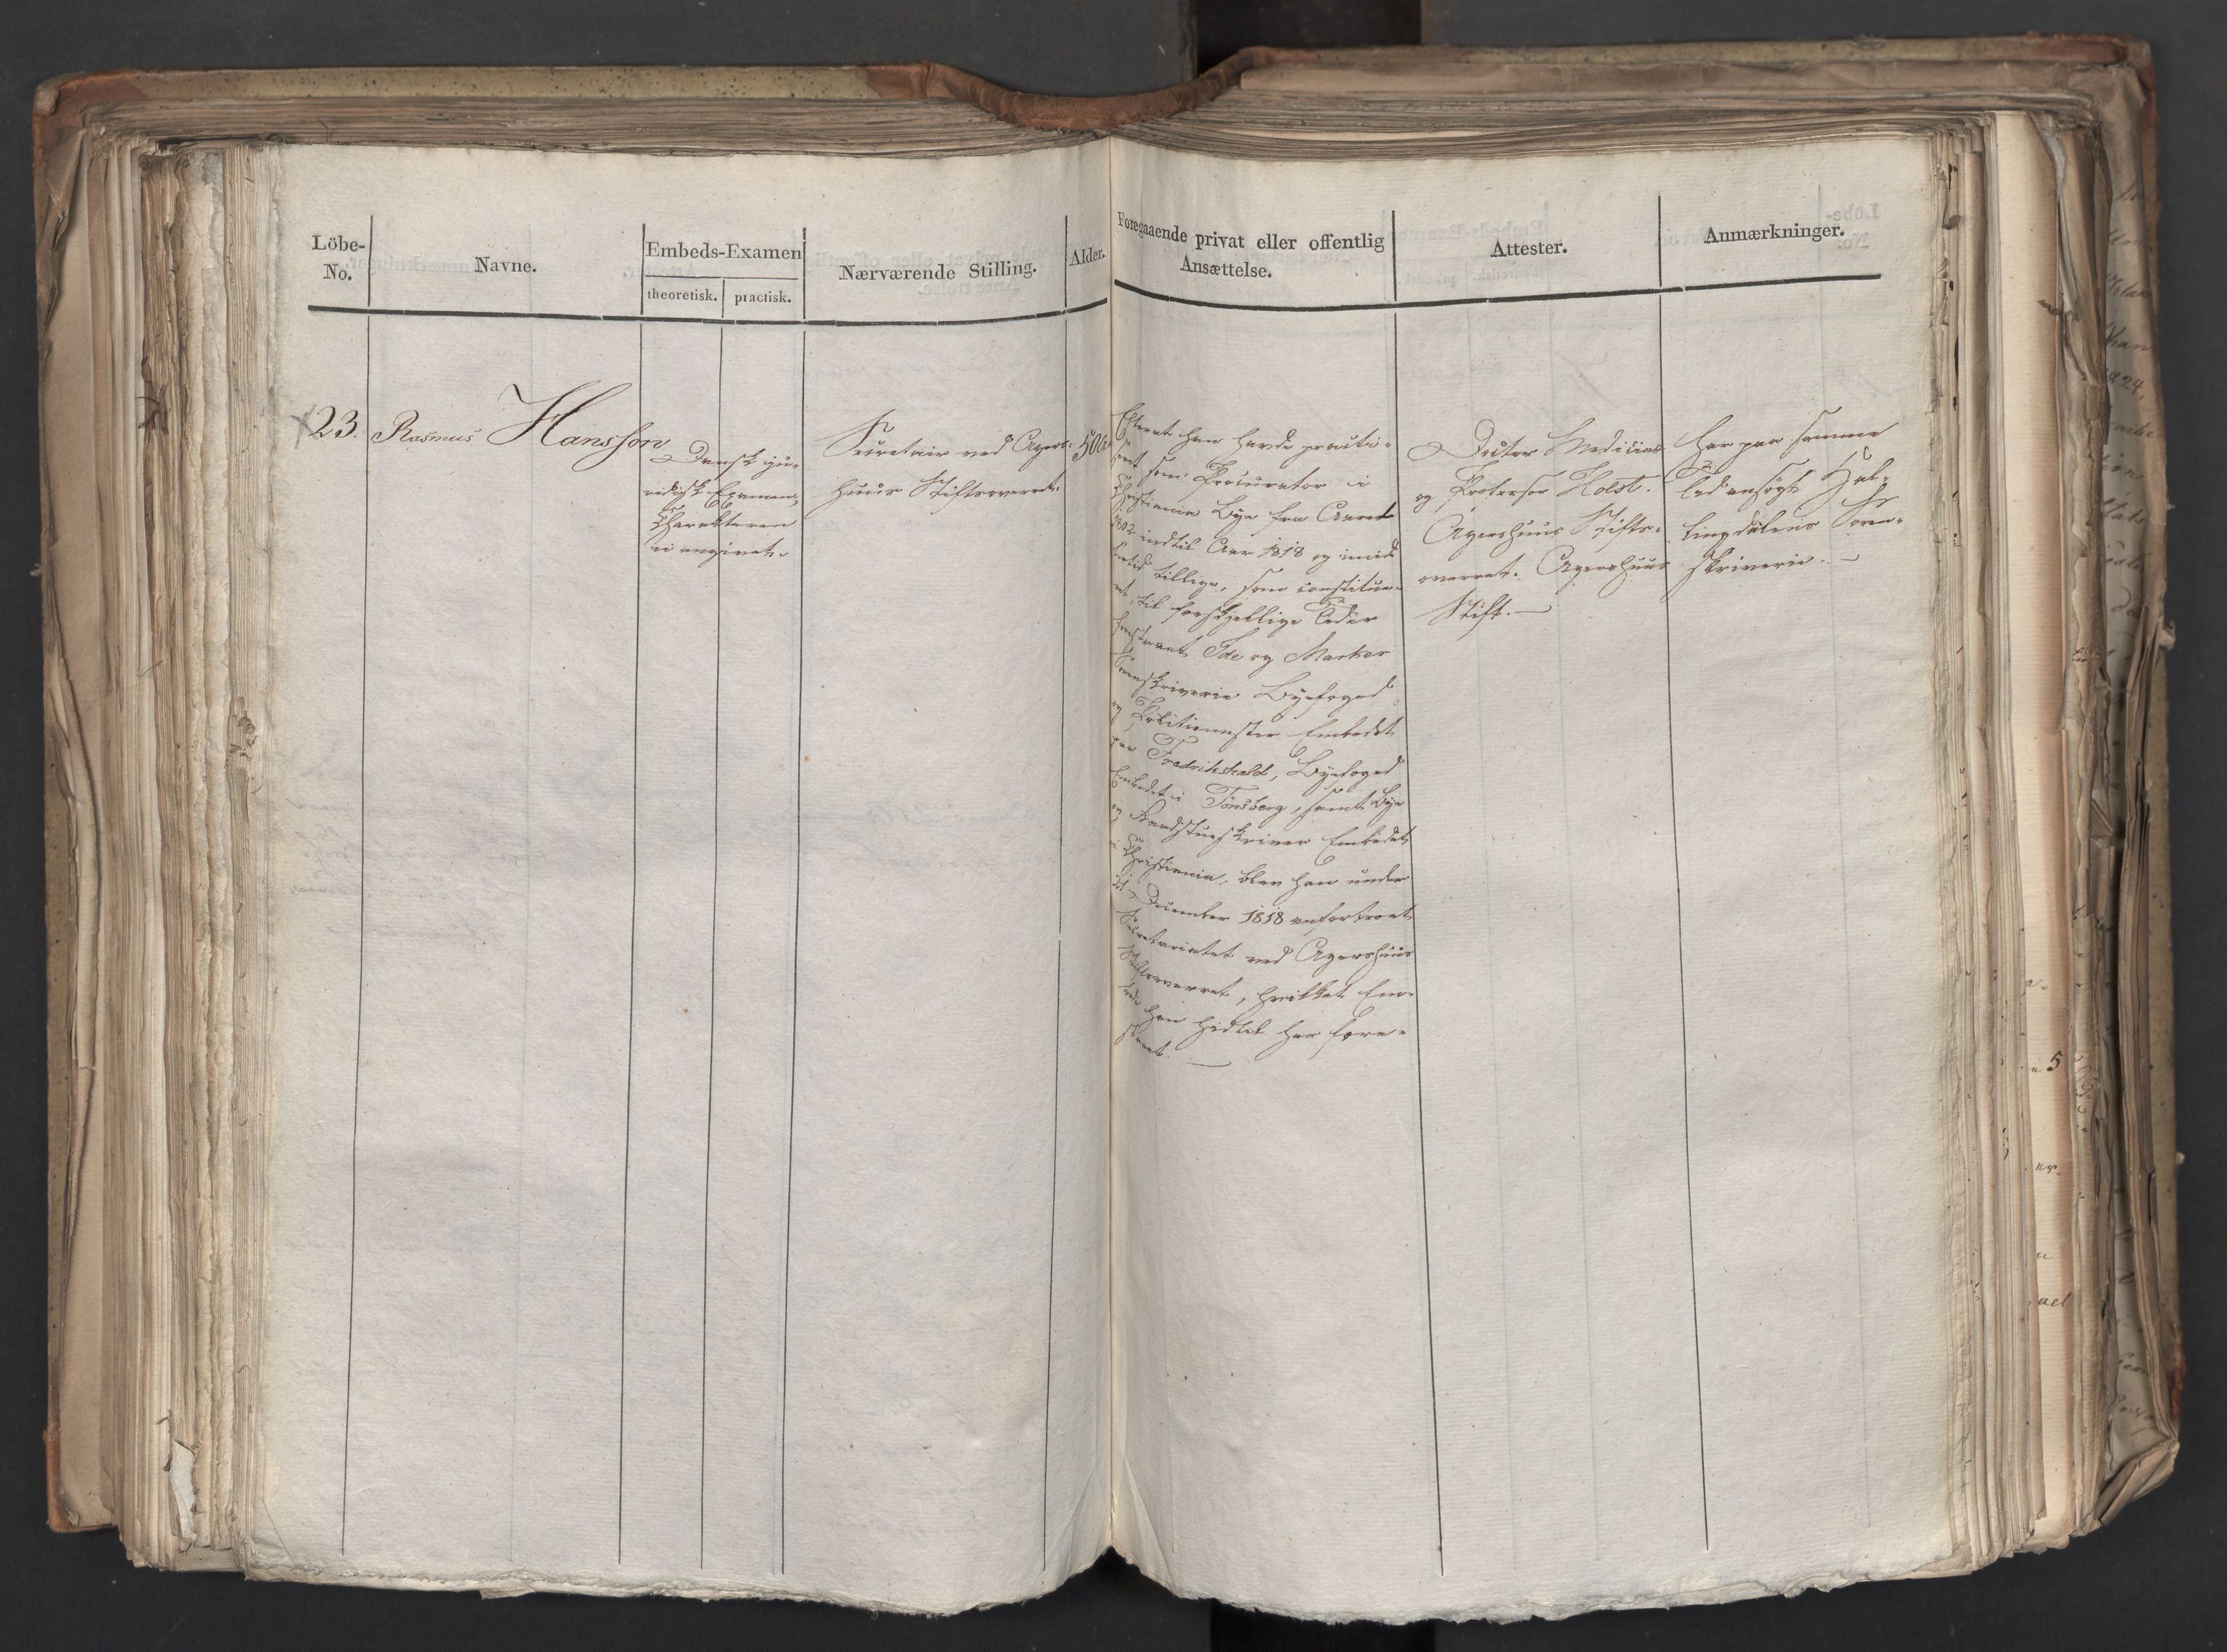 Löbe-
No.
Navne.
Embeds-Examen
theoretisk.
practisk.
Nærværende Stilling.
Alder.
Foregaaende privat eller offentlig
Ansættelse.
Attester.
Anmærkninger.
23.
Rasmus Hansson
Dansk ju-
ridisk Examen,
Charakteren
ei angivet.
Secretair ved Agers-
huus Stiftsoverret.
Efterat han havde practi-
seret som Procurator i
Christiania Bye fra Aaret
1802 indtil Aar 1818 og imid-
lertid tillige, som constitue-
ret, til forskjellige Tider
forestaaet Ide og Marker
Sorenskriverie Byefoged
og Politiemester Embedet
paa Fredrikshald, Byefoged
Embedet i Tönsberg, samt Bye
og Raadstueskriver Embedet
i Christiania, blev han under
21 December 1818 anfortroet
Secretariatet ved Agershuus
Stiftsoverret, hvilket Em-
bede han hidtil har fore-
staaet.
Doctor Medicinæ
og Professor Holst.
Agershuus Stifts-
overret. Agershuus
Stift.
Har paa samme
Tid ansögt Hal-
lingdalens Soren-
skriverie.